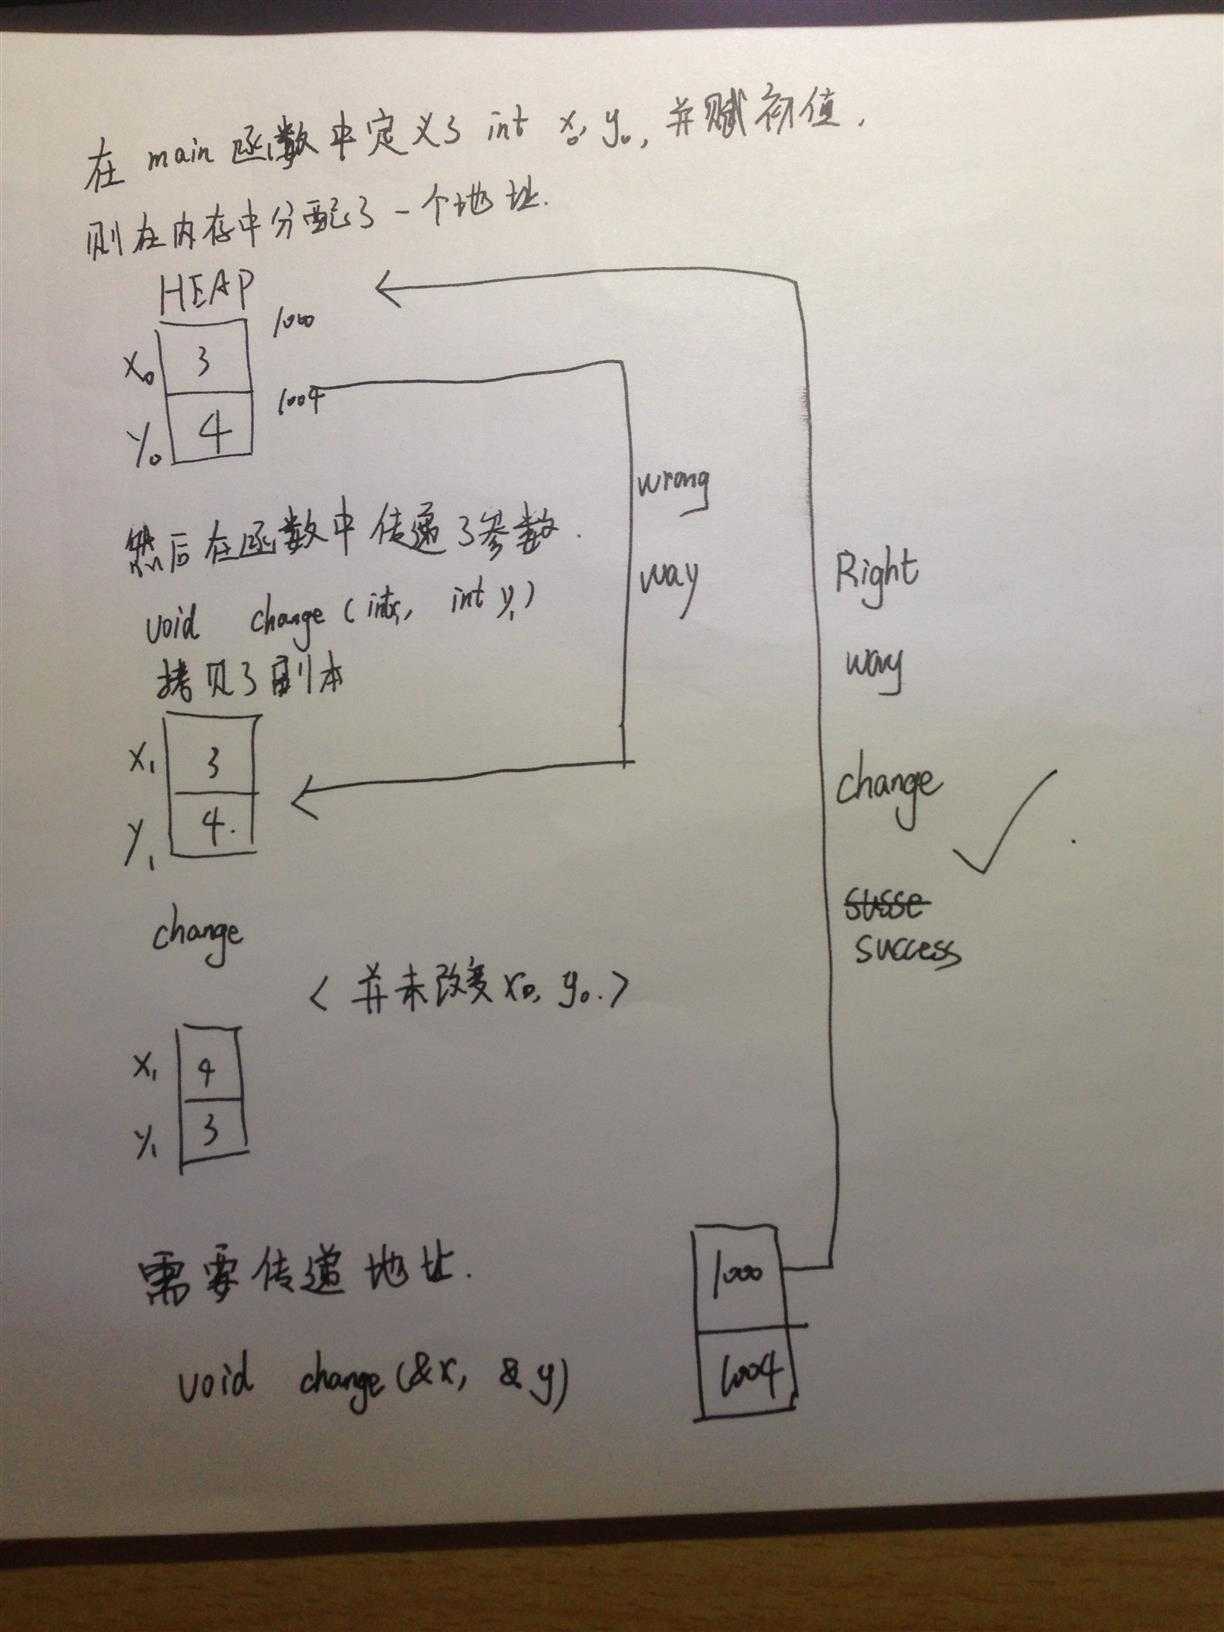 在 main 函数中定义了 int x₀, y₀, 并赋初值,
则在内存中分配了一个地址.
HEAP
1000
x₀ 3
1004
y₀ 4
wrong
way
然后在函数中传递了参数.
void change (int x₁, int y₁)
拷贝了副本
x₁ 3
y₁ 4.
change
<并未改变 x₀, y₀.>
x₁ 4
y₁ 3
Right
way
change
susse
success
需要传递地址.
void change (&x, &y)
1000
1004